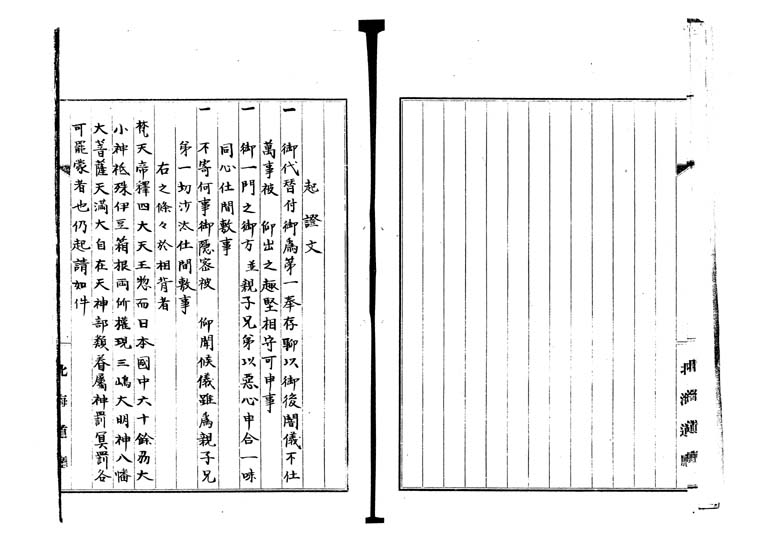 起證文
一 御代替付御為第一奉存聊以御後闇儀不仕
萬事被 仰出之趣堅相守可申事
一 御一門之御方並親子兄弟以惡心申合一味
同心仕間敷事
一 不寄何事御隠密被 仰聞候儀雖為親子兄
第一切沙汰仕間敷事
右之條々於相背者
梵天帝釋四大天王惣而日本國中六十餘州大
小神祇殊伊豆箱根両所權現三嶋大明神八幡
大菩薩天満大自在天神部類眷屬神罰冥罰各
可罷蒙者也仍起請如件
北海道廳
北海道廳